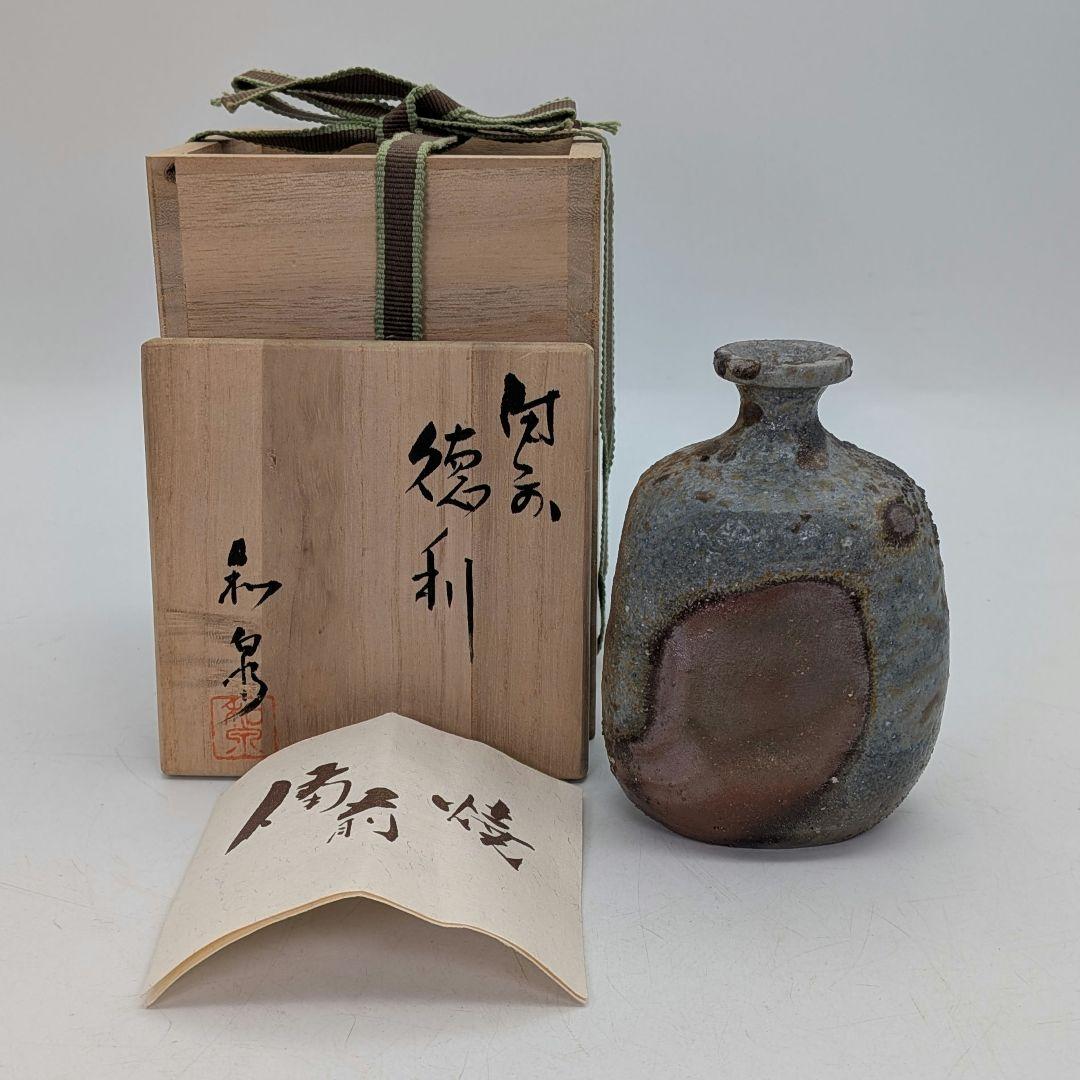 備前
徳利
和泉
和泉
備前焼